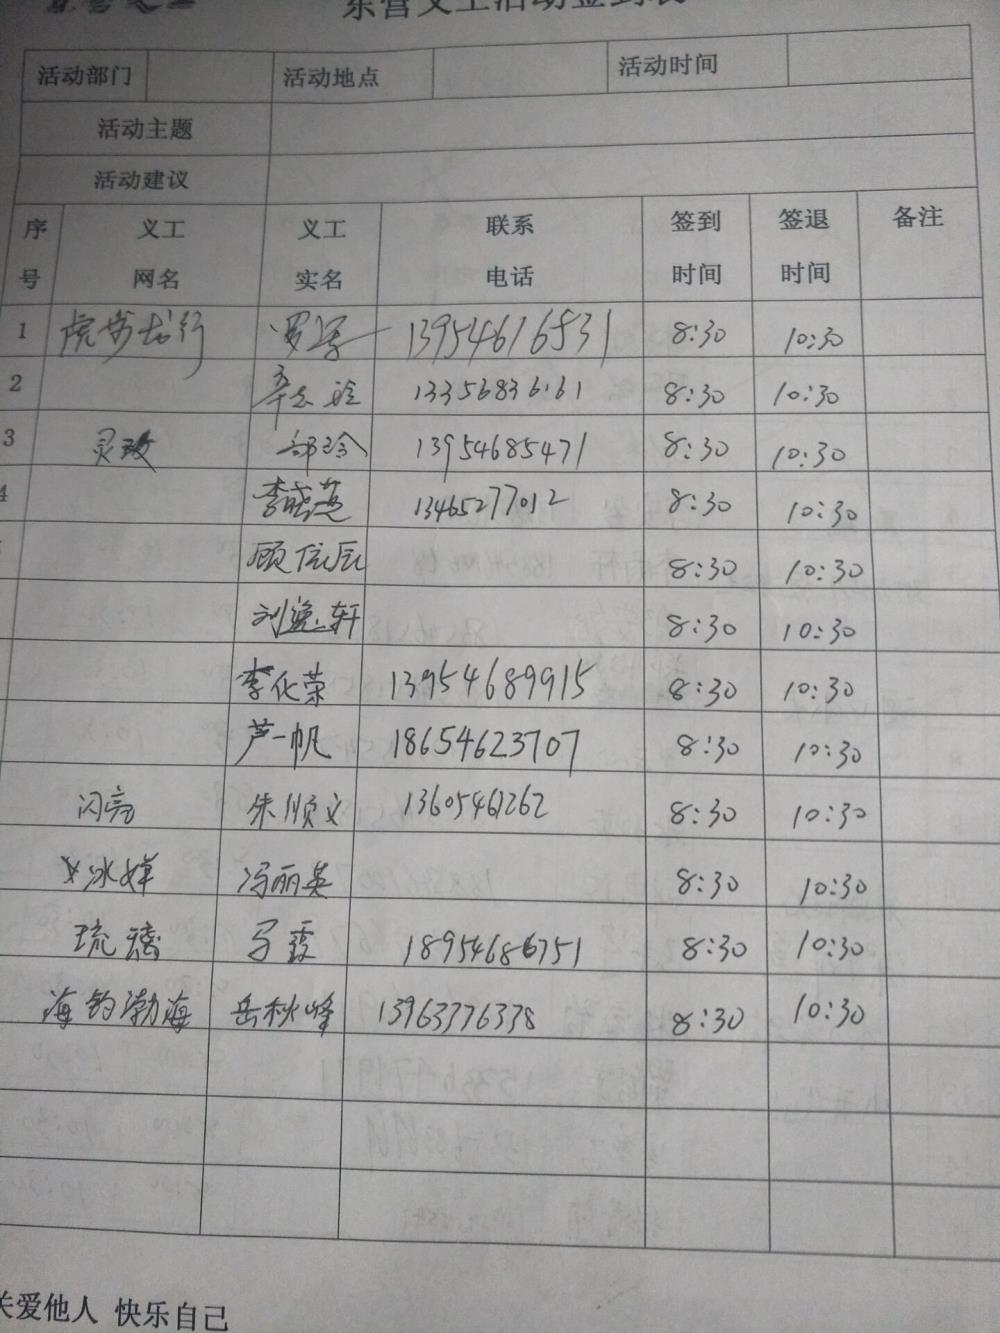 东营义工活动签到表
活动部门 活动地点 活动时间
活动主题
活动建议
序号 义工网名 义工实名 联系电话 签到时间 签退时间 备注
1 虎步龙行 13954616531 8:30 10:30
2 13356836161 8:30 10:30
3 灵玫 部玲 13954685471 8:30 10:30
4 李盛莲 13465277012 8:30 10:30
顾信辰 8:30 10:30
刘逸轩 8:30 10:30
李化荣 13954689915 8:30 10:30
芦一帆 18654623707 8:30 10:30
闪亮 朱顺义 13605461262 8:30 10:30
冰婵 冯丽英 8:30 10:30
琉璃 马霞 18954686751 8:30 10:30
海钓渤海 岳秋峰 13963776338 8:30 10:30
关爱他人 快乐自己